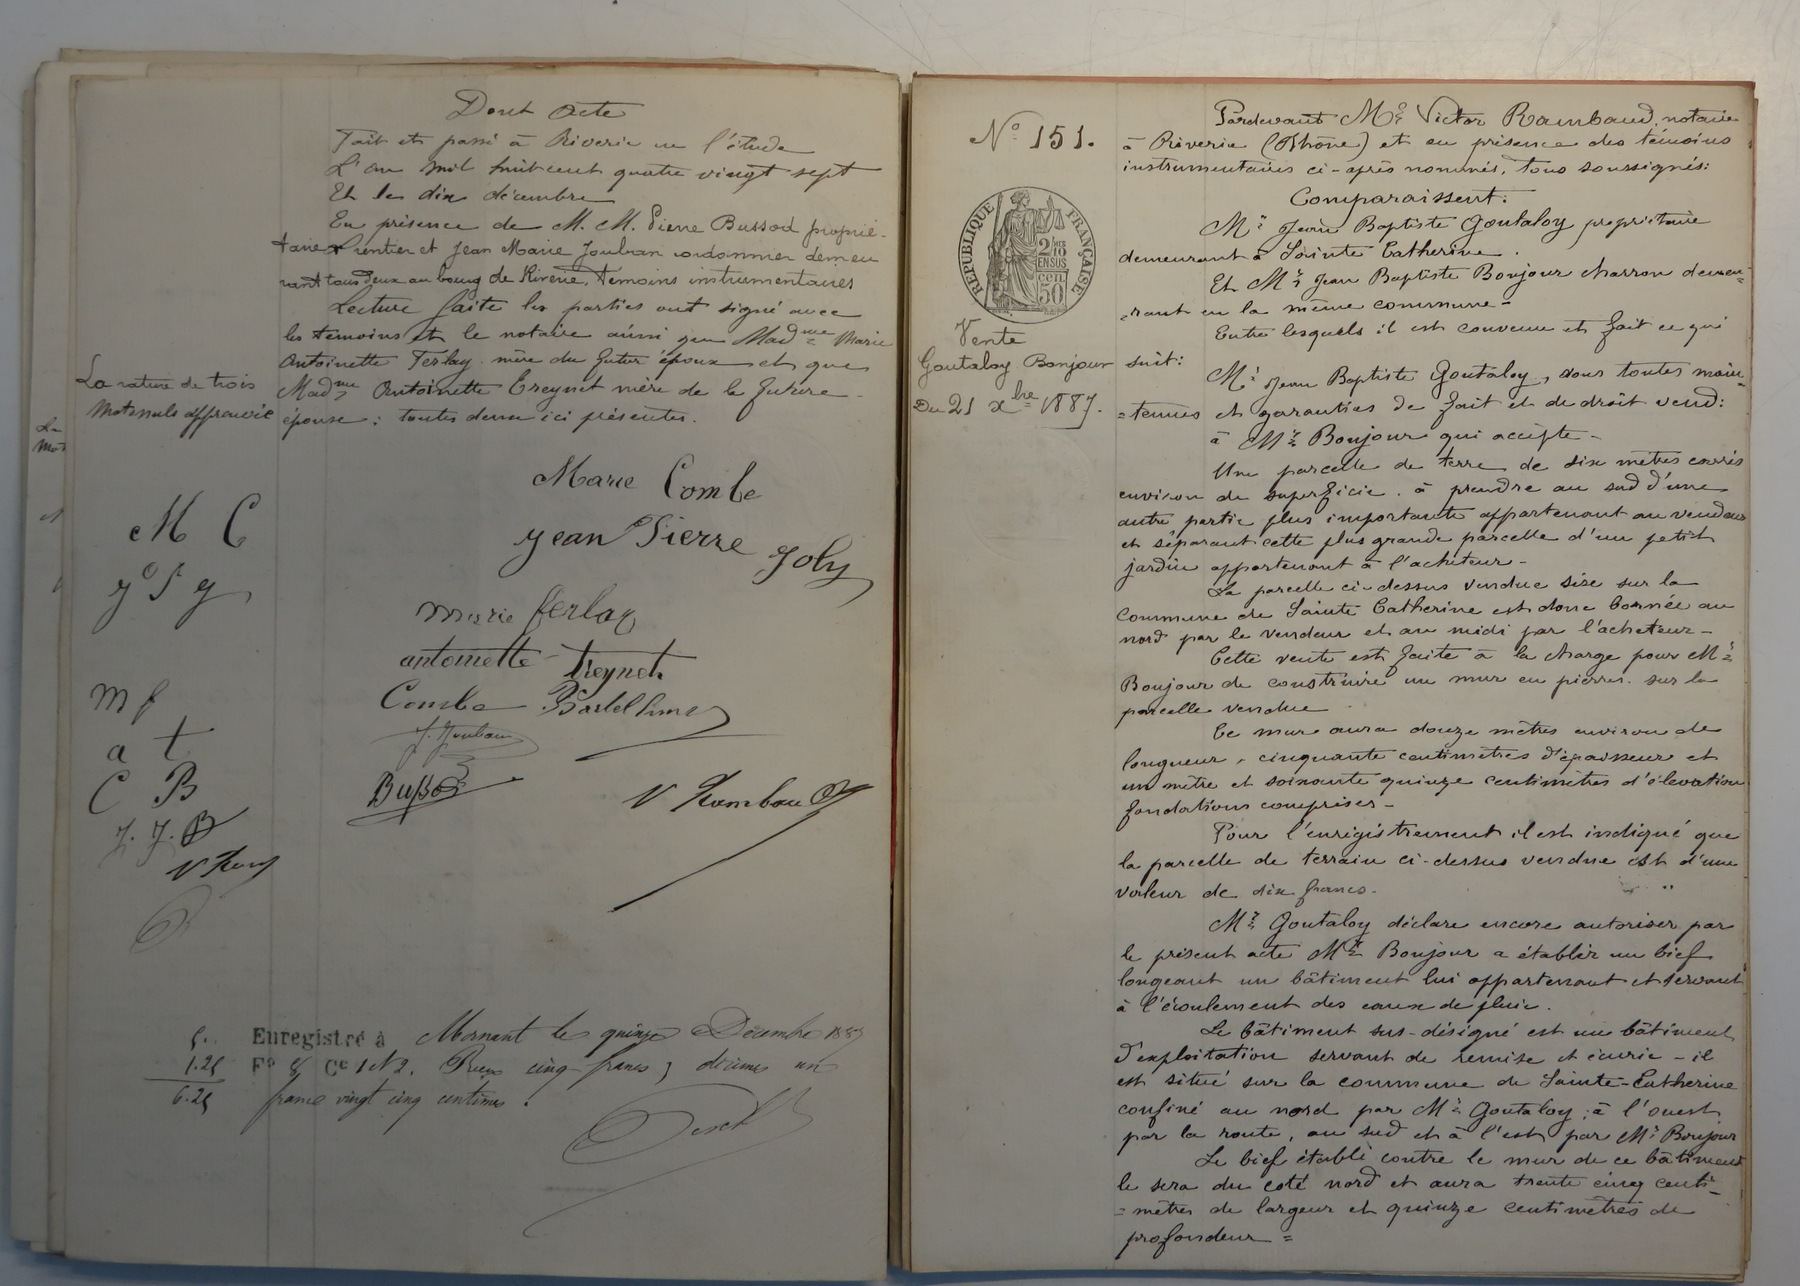 Dont acte
Fait et passé à Riverie en l'étude
L'an mil huit cent quatre vingt sept
Et le dix décembre
En présence de M. M. Pierre Bussod proprié-
taire rentier et Jean Marie Joubran cordonnier demeu
rant tous deux au bourg de Riverie, témoins instrumentaires
Lecture faite les parties ont signé avec
les témoins et le notaire ainsi que Madme Marie
Antoinette Ferlay mère du futur époux et que
Madme Antoinette Treynet mère de la future
épouse ; toutes deux ici présentes.
La rature de trois
mots nuls approuvée
Marie Combe
Jean Pierre Joly
marie ferlay
antoinette treynet
Combe Bartelhmy
J. Joubran
Bussod
V Rambaud
M C
J P J
m f
a t
C B
J. J. B
V Ram
5.
1.25
6.25
Enregistré à Mornant le quinze Décembre 1887
F° 8 Ce 1 N 2. Reçu cinq francs, décimes un
franc vingt cinq centimes.
N° 151.
RÉPUBLIQUE FRANÇAISE
2/10
EN SUS
50
cen
Vente
Goutaloy Bonjour
Du 21 xbre 1887.
Pardevant Me Victor Rambaud, notaire
à Riverie (Rhône) et en présence des témoins
instrumentaires ci-après nommés, tous soussignés:
Comparaissent:
Mr Jean Baptiste Goutaloy propriétaire
demeurant à Sainte Catherine.
Et Mr Jean Baptiste Bonjour charron demeu-
=rant en la même commune-
Entre lesquels il est convenu et fait ce qui
suit:
Mr Jean Baptiste Goutaloy, sous toutes main-
=tenues et garanties de fait et de droit vend:
à Mr Bonjour qui accepte-
Une parcelle de terre de dix mètres carrés
environ de superficie. à prendre au sud d'une
autre partie plus importante appartenant au vendeur
et séparant cette plus grande parcelle d'un petit
jardin appartenant à l'acheteur-
La parcelle ci-dessus vendue sise sur la
commune de Sainte Catherine est donc bornée au
nord par le vendeur et au midi par l'acheteur-
Cette vente est faite à la charge pour Mr
Bonjour de construire un mur en pierres sur la
parcelle vendue
Ce mur aura douze mètres environ de
longueur, cinquante centimètres d'épaisseur et
un mètre et soixante quinze centimètres d'élévation
fondations comprises-
Pour l'enregistrement il est indiqué que
la parcelle de terrain ci-dessus vendue est d'une
valeur de dix francs-
Mr Goutaloy déclare encore autoriser par
le présent acte Mr Bonjour a établir un bief
longeant un bâtiment lui appartenant et servant
à l'écoulement des eaux de pluie.
Le bâtiment sus-désigné est un bâtiment
d'exploitation servant de remise et écurie - il
est situé sur la commune de Sainte-Catherine
confiné au nord par Mr Goutaloy; à l'ouest
par la route, au sud et à l'est par Mr Bonjour
Le bief établi contre le mur de ce bâtiment
le sera du coté nord et aura trente cinq centi-
=mètres de largeur et quinze centimètres de
profondeur =